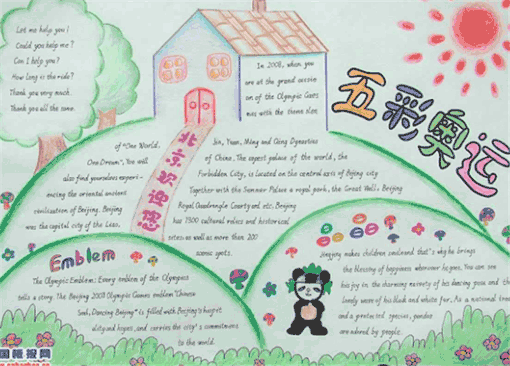 Let me help you!
Could you help me?
Can I help you?
How long is the ride?
Thank you very much.
Thank you all the same.
In 2008, when you
are at the grand
on of the Olympic
with the theme
of "One World,
One Dream". You will
also find yourselves
encing the oriental ancient
civilization of Beijing. Beijing
was the capital city of the Liao,
Jin, Yuan, Ming and Qing Dynasties
of China. The
palace of the world, the
Forbidden City, is located on the central axis of
city
Together with the Summer Palace a royal park, the Great Wall, Beijing
Royal Quadrangle Courtyard etc. Beijing
has 7300 cultural relics and historical
sites as well as more than 200
scenic spots.
五彩奥运
北京欢迎您
Emblem
The Olympic Emblem: Every emblem of the Olympics
tells a story. The Beijing 2008 Olympic Games emblem "Chinese
Seal, Dancing Beijing" is filled with Beijing's
and hopes, and carries the city's commitments
to the world.
Jingjing makes children
that's why he brings
the blessing of happiness wherever he goes. You can see
his joy in the charming
of his dancing pose and the
lovely
of his black and white fur. As a national
and a protected special, pandas
are adored by people.